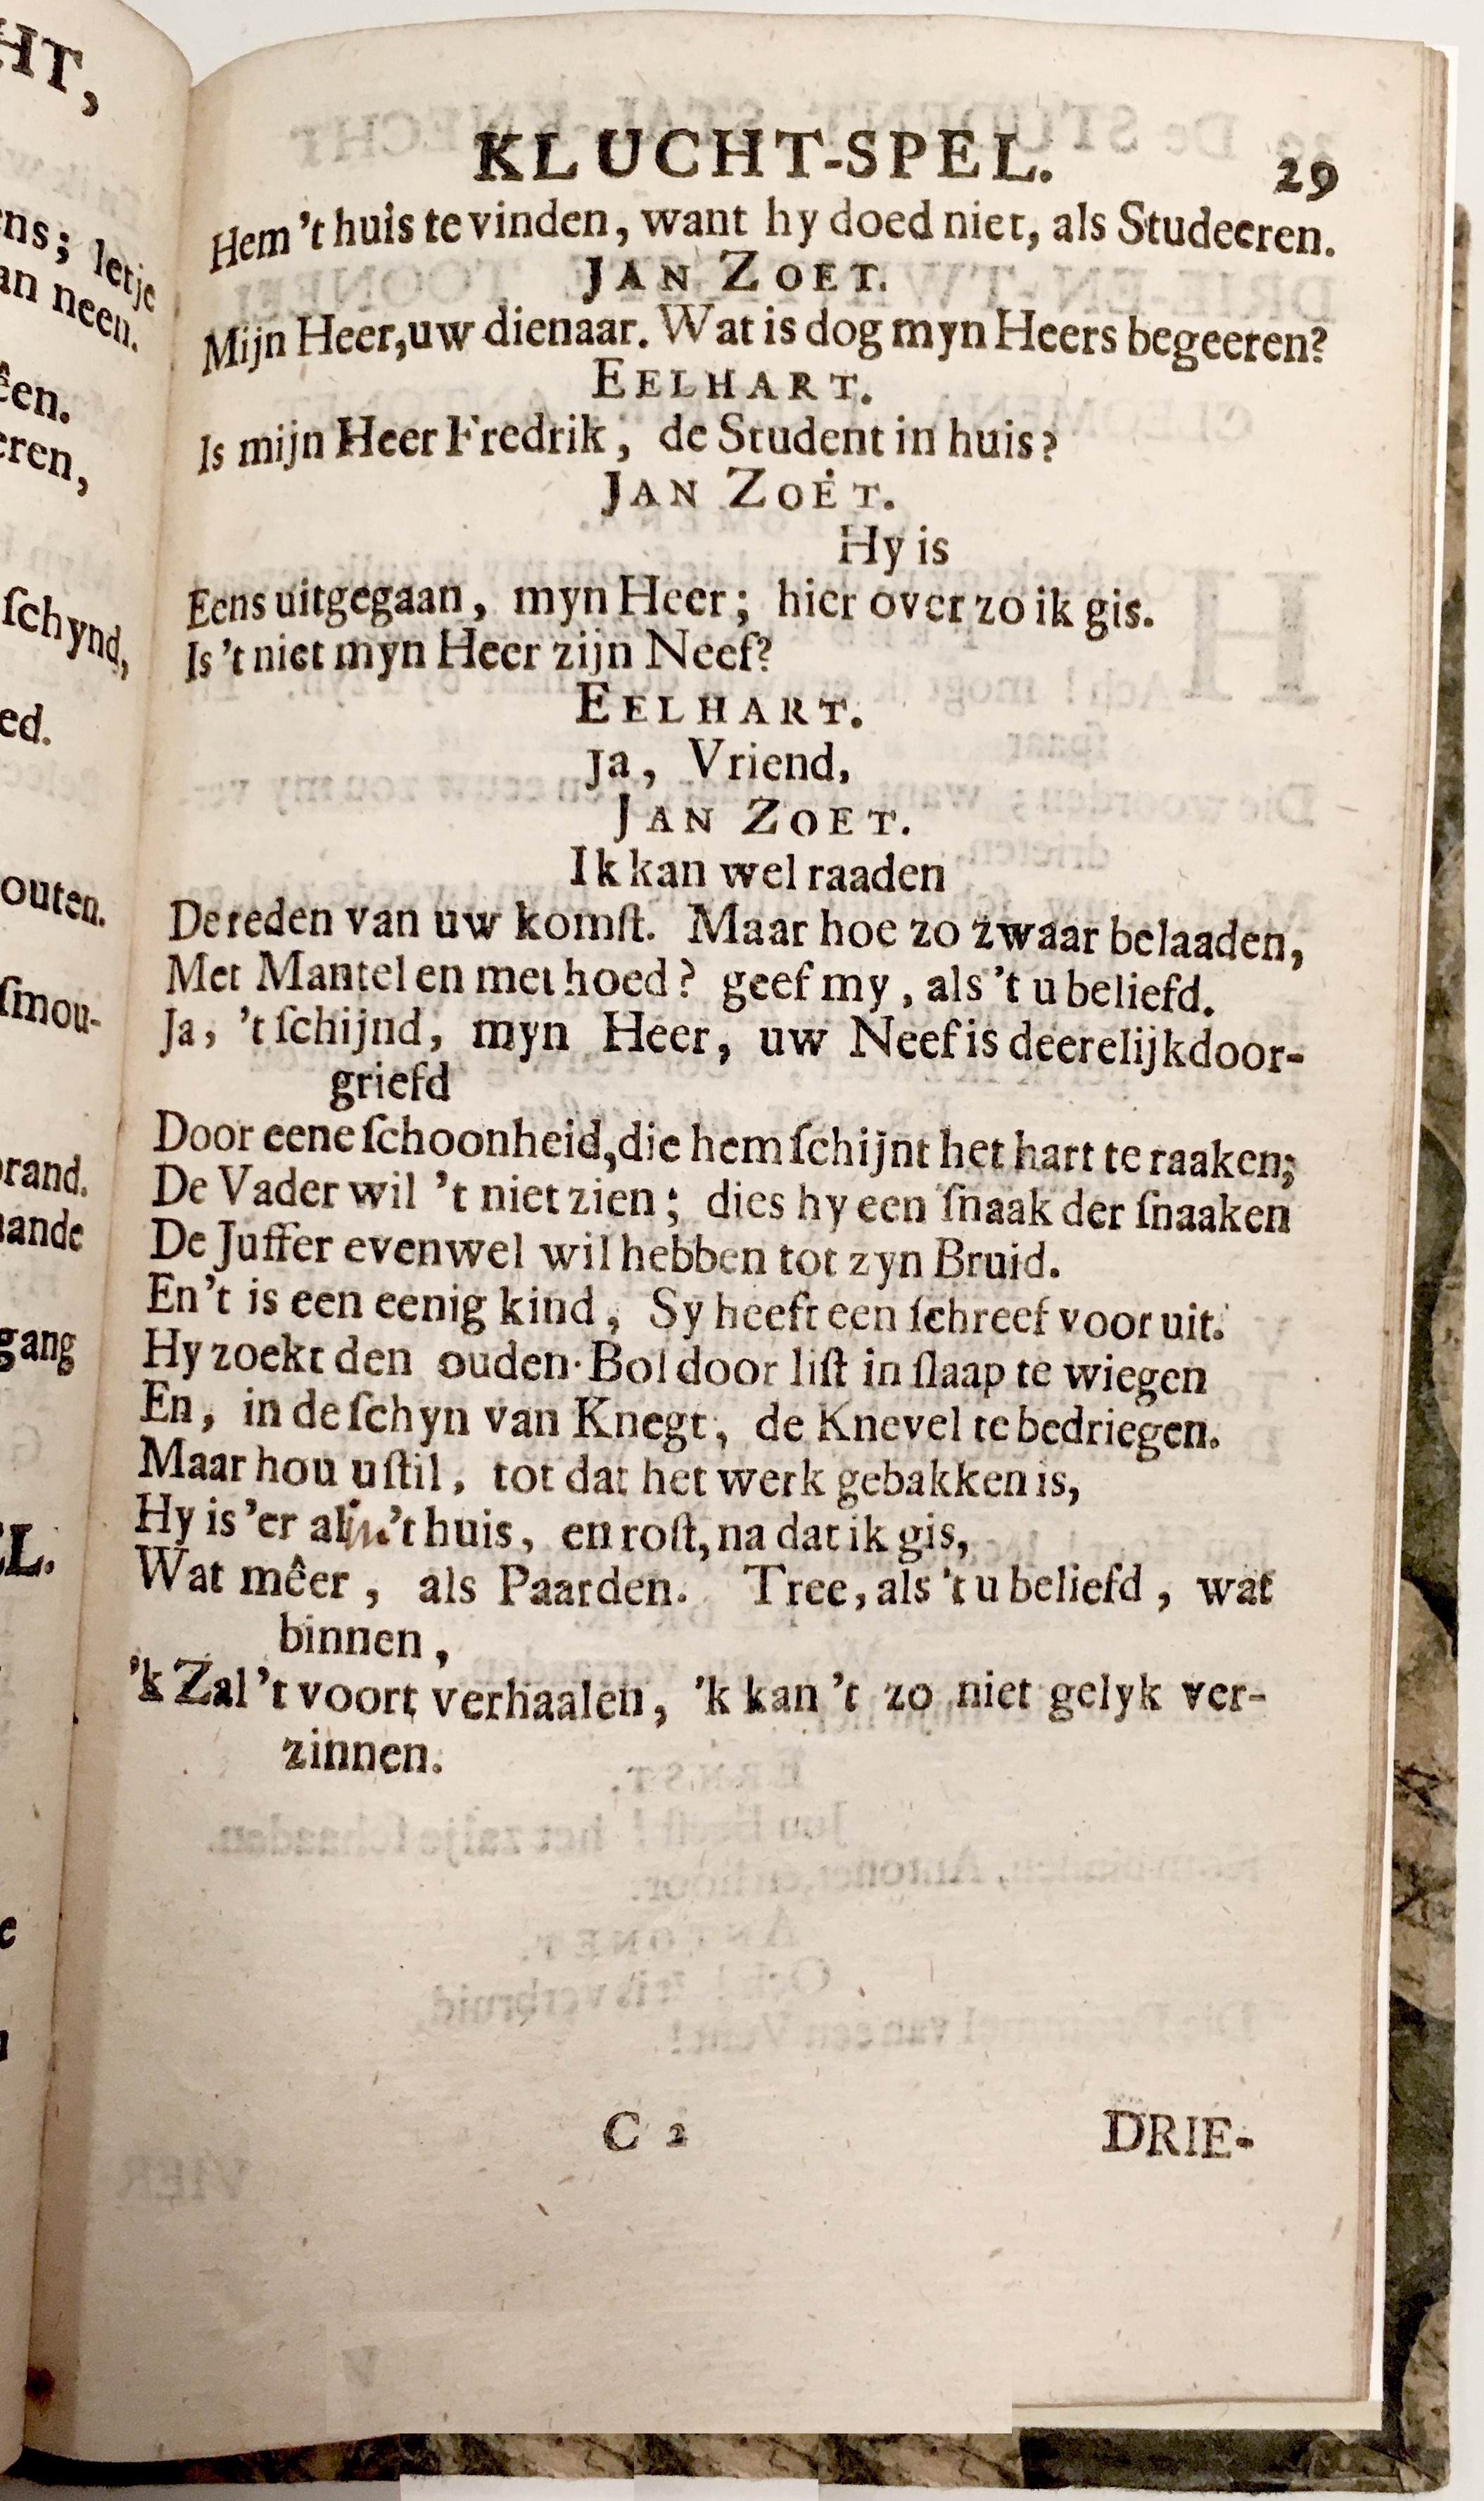 HT,
ns; letje
an neen.
êen.
eren,
ſchynd,
ed.
outen.
ſmou-
rand.
aande
gang
EL.
e
KLUCHT-SPEL. 29
Hem 't huis te vinden, want hy doed niet, als Studeeren.
JAN ZOET.
Mijn Heer, uw dienaar. Wat is dog myn Heers begeeren?
EELHART.
Is mijn Heer Fredrik, de Student in huis?
JAN ZOET.
Hy is
Eens uitgegaan, myn Heer; hier over zo ik gis.
Is 't niet myn Heer zijn Neef?
EELHART.
Ja, Vriend,
JAN ZOET.
Ik kan wel raaden
De reden van uw komſt. Maar hoe zo zwaar belaaden,
Met Mantel en met hoed? geef my, als 't u beliefd.
Ja, 't ſchijnd, myn Heer, uw Neef is deerelijk door-
griefd
Door eene ſchoonheid, die hem ſchijnt het hart te raaken;
De Vader wil 't niet zien; dies hy een ſnaak der ſnaaken
De Juffer evenwel wil hebben tot zyn Bruid.
En 't is een eenig kind, Sy heeft een ſchreef voor uit.
Hy zoekt den ouden Bol door liſt in ſlaap te wiegen
En, in de ſchyn van Knegt, de Knevel te bedriegen.
Maar hou u ſtil, tot dat het werk gebakken is,
Hy is 'er al in 't huis, en roſt, na dat ik gis,
Wat mêer, als Paarden. Tree, als 't u beliefd, wat
binnen,
'k Zal 't voort verhaalen, 'k kan 't zo niet gelyk ver-
zinnen.
C 2 DRIE-